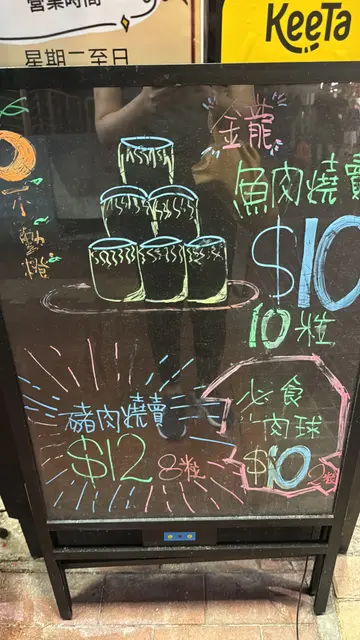 營業時間
星期二至日
KeeTa
金龍
魚肉燒賣
$10
10粒
豬肉燒賣
$12 8粒
必食
肉球
$10